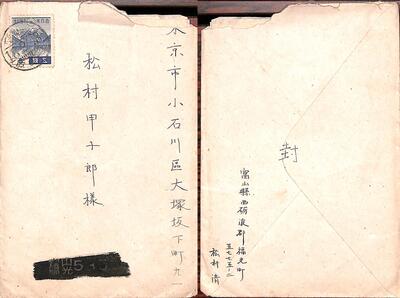 東京市小石川區大塚坂下町九一
松村甲子郎様
封
富山縣西礪波郡福光町
五七七五ノ二
松村 清